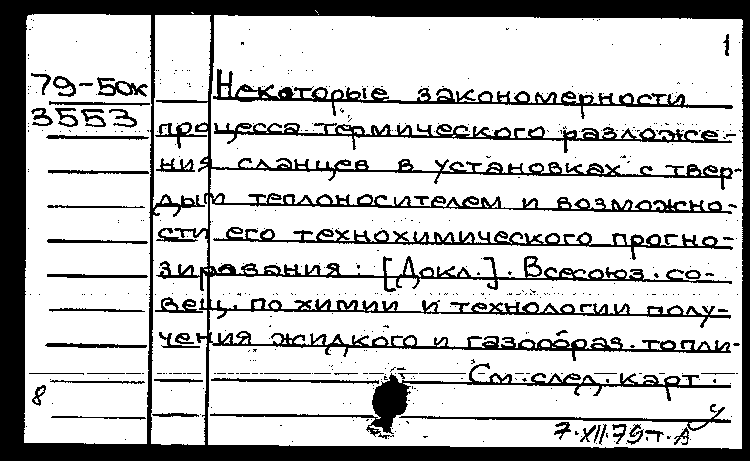 1
79-50к
3553
Некоторые закономерности
процесса термического разложе-
ния сланцев в установках с твер-
дым теплоносителем и возможно-
сти его технохимического прогно-
зирования: [Докл.]. Всесоюз. со-
вещ. по химии и технологии полу-
чения жидкого и газообраз. топли-
См. след. карт.
8
7.XII.79.т.А